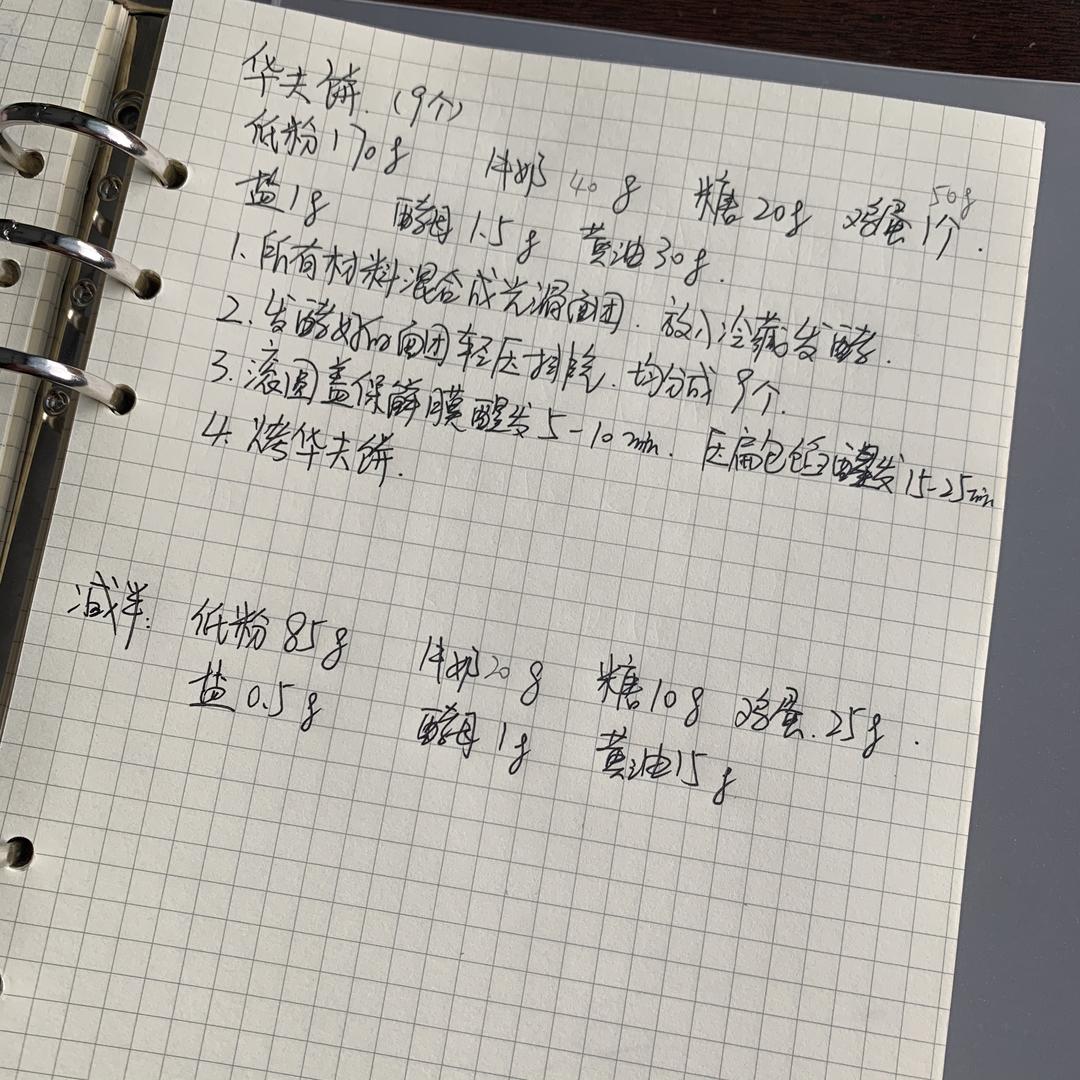 华夫饼.（9个）
低粉170g 牛奶40g 糖20g 鸡蛋1个. 50g
盐1g 酵母1.5g 黄油30g.
1. 所有材料混合成光滑面团. 放入冷藏发酵.
2. 发酵好的面团轻压排气. 均分成9个.
3. 滚圆盖保鲜膜醒发5-10min. 压扁包馅醒发15-25min
4. 烤华夫饼.
减半: 低粉85g 牛奶20g 糖10g 鸡蛋.25g.
盐0.5g 酵母1g 黄油15g